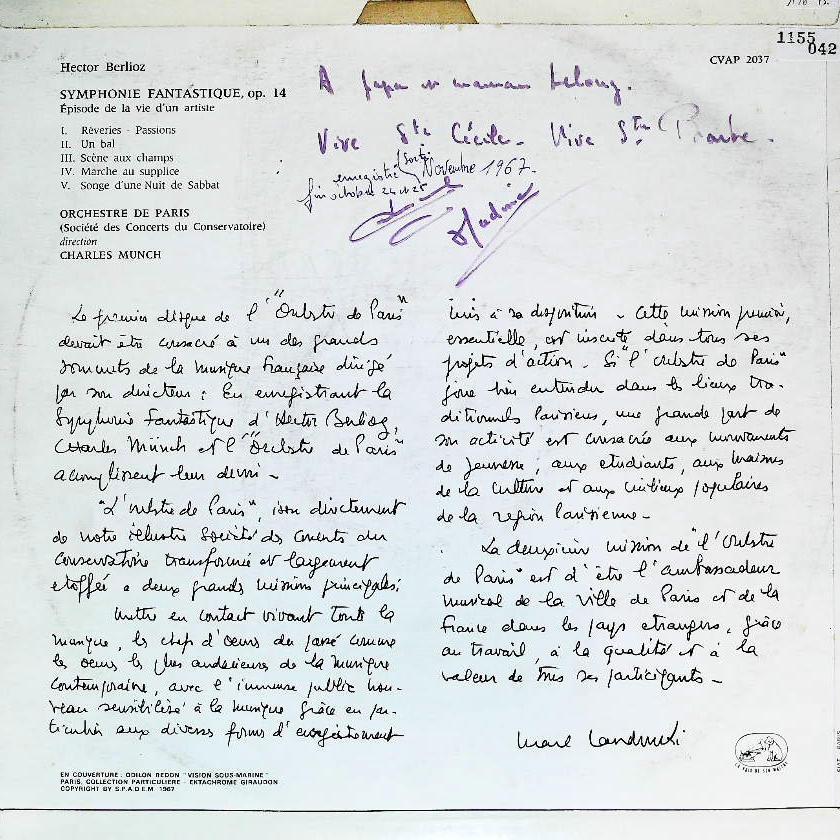 1155
042
CVAP 2037
Hector Berlioz
SYMPHONIE FANTASTIQUE, op. 14
Épisode de la vie d'un artiste
I. Rêveries - Passions
II. Un bal
III. Scène aux champs
IV. Marche au supplice
V. Songe d'une Nuit de Sabbat
ORCHESTRE DE PARIS
(Société des Concerts du Conservatoire)
direction
CHARLES MUNCH
A papa et maman
Vive Ste Cécile. Vive Ste
Sortie
enregistré Novembre 1967.
fin octobre
Le premier disque de l'"Orchestre de Paris"
devait être consacré à un des grands
sommets de la musique française dirigé
par son directeur : En enregistrant la
Symphonie Fantastique d'Hector Berlioz,
Charles Münch et l'"Orchestre de Paris"
accomplissent leur devoir -
"L'orchestre de Paris", issu directement
de notre illustre Société des concerts du
Conservatoire transformée et largement
etoffée a deux grandes missions principales :
mettre en contact vivant toute la
musique, les chefs d'œuvres du passé comme
les œuvres les plus audacieuses de la musique
contemporaine, avec l'immense public nou-
veau sensibilisé à la musique grâce en par-
ticulier aux diverses formes d'enregistrement
mis à sa disposition - Cette mission première,
essentielle, est inscrite dans tous ses
projets d'action - Si "l'orchestre de Paris"
joue bien entendu dans les lieux tra-
ditionnels Parisiens, une grande part de
son activité est consacrée aux mouvements
de jeunesse, aux etudiants, aux maisons
de la culture et aux milieux populaires
de la region Parisienne -
La deuxième mission de "l'Orchestre
de Paris" est d'être l'ambassadeur
musical de la ville de Paris et de la
France dans les pays etrangers, grâce
au travail, à la qualité et à la
valeur de tous ses participants -
Marcel Landowski
EN COUVERTURE : ODILON REDON "VISION SOUS-MARINE"
PARIS, COLLECTION PARTICULIERE - EKTACHROME GIRAUDON
COPYRIGHT BY S.P.A.D.E.M. 1967
LA VOIX DE SON MAITRE